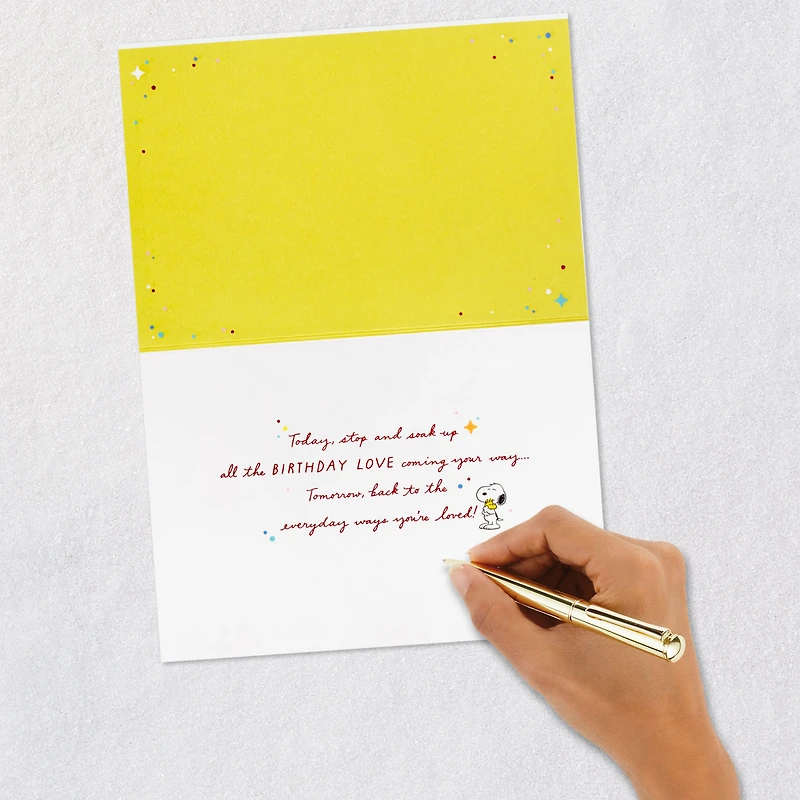 Today, stop and soak up
all the BIRTHDAY LOVE coming your way...
Tomorrow, back to the
everyday ways you're loved!